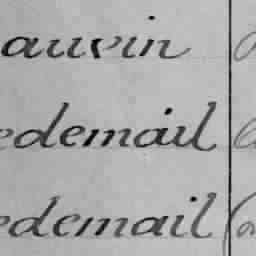 auvin
edemail
edemail